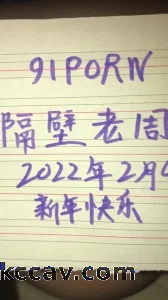 91PORN
隔壁老周
2022年2月
新年快乐
kccav.com